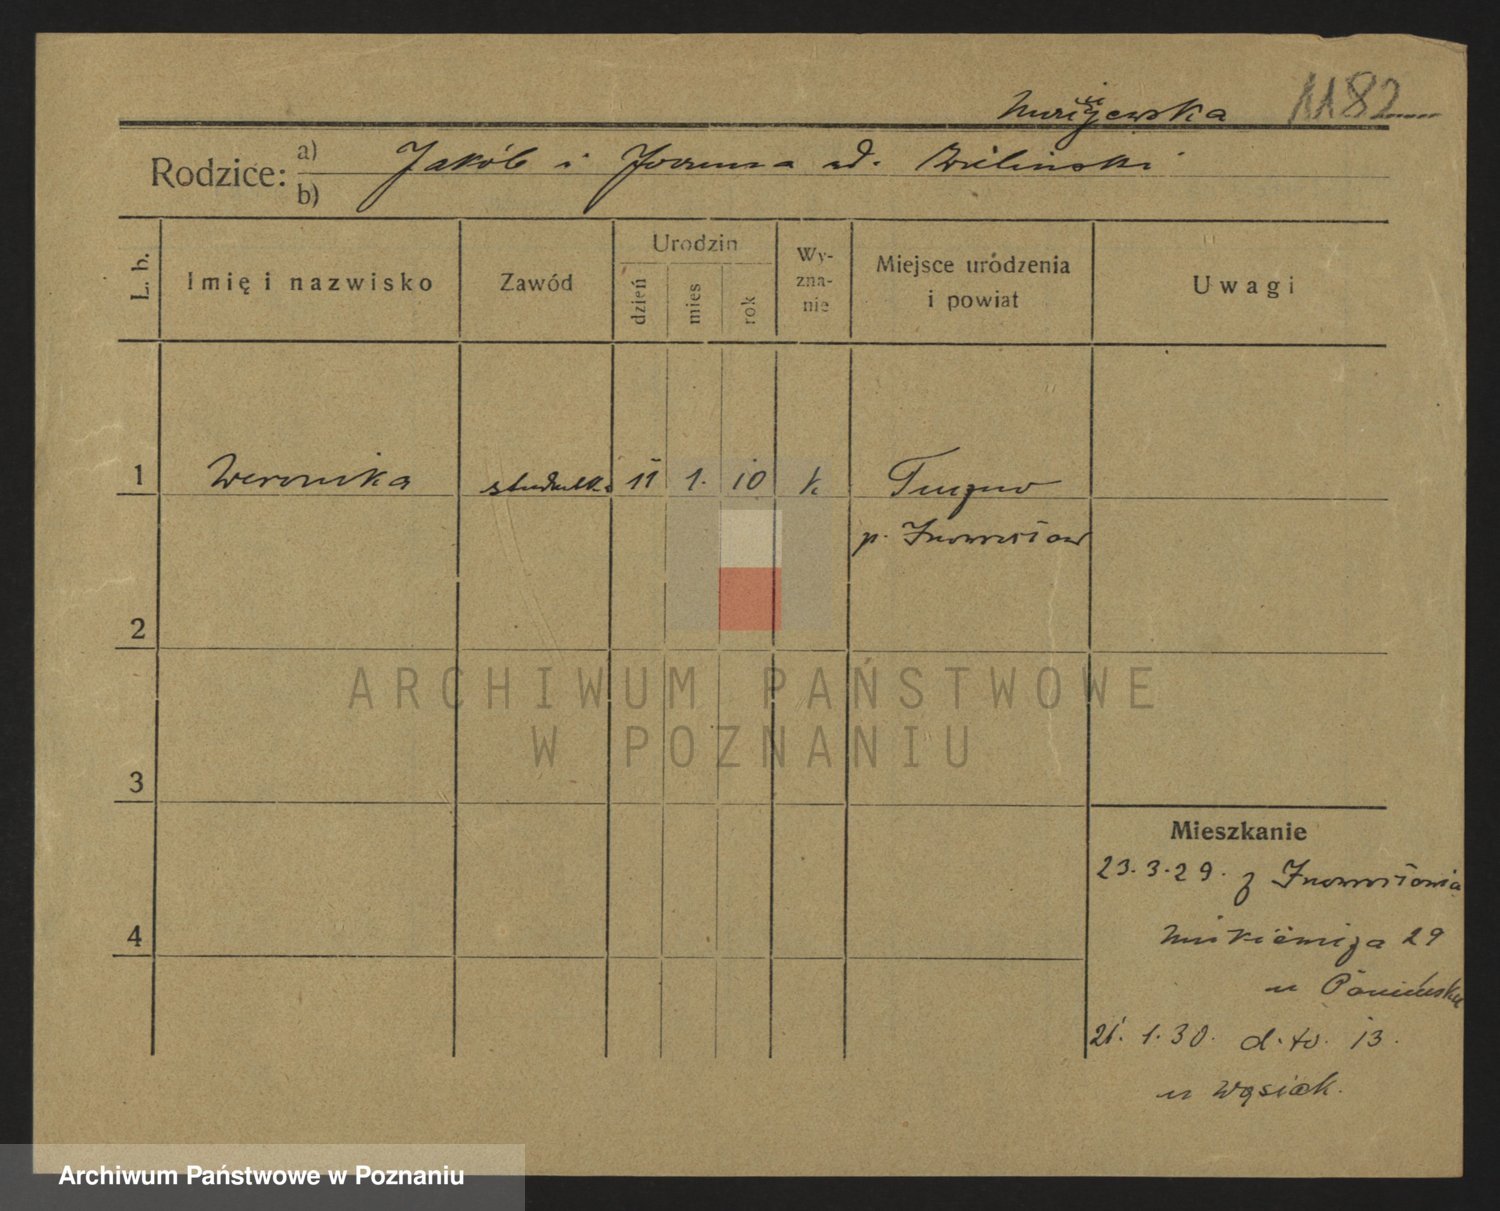 1182
Rodzice: a) Jakób i Joanna ur. Zieliński
b)
L. b.
Imię i nazwisko
Zawód
Urodzin
dzień
mies
rok
Wy-
zna-
nie
Miejsce urodzenia
i powiat
Uwagi
1 Weronika studentka 11 1. 10 k Tuczno
p. Inowrocław
2
3
4
Mieszkanie
23.3.29. z Inowrocławia
29
u
21. 1.30. d.to. 13.
u Wąsiak.
ARCHIWUM PAŃSTWOWE
W POZNANIU
Archiwum Państwowe w Poznaniu